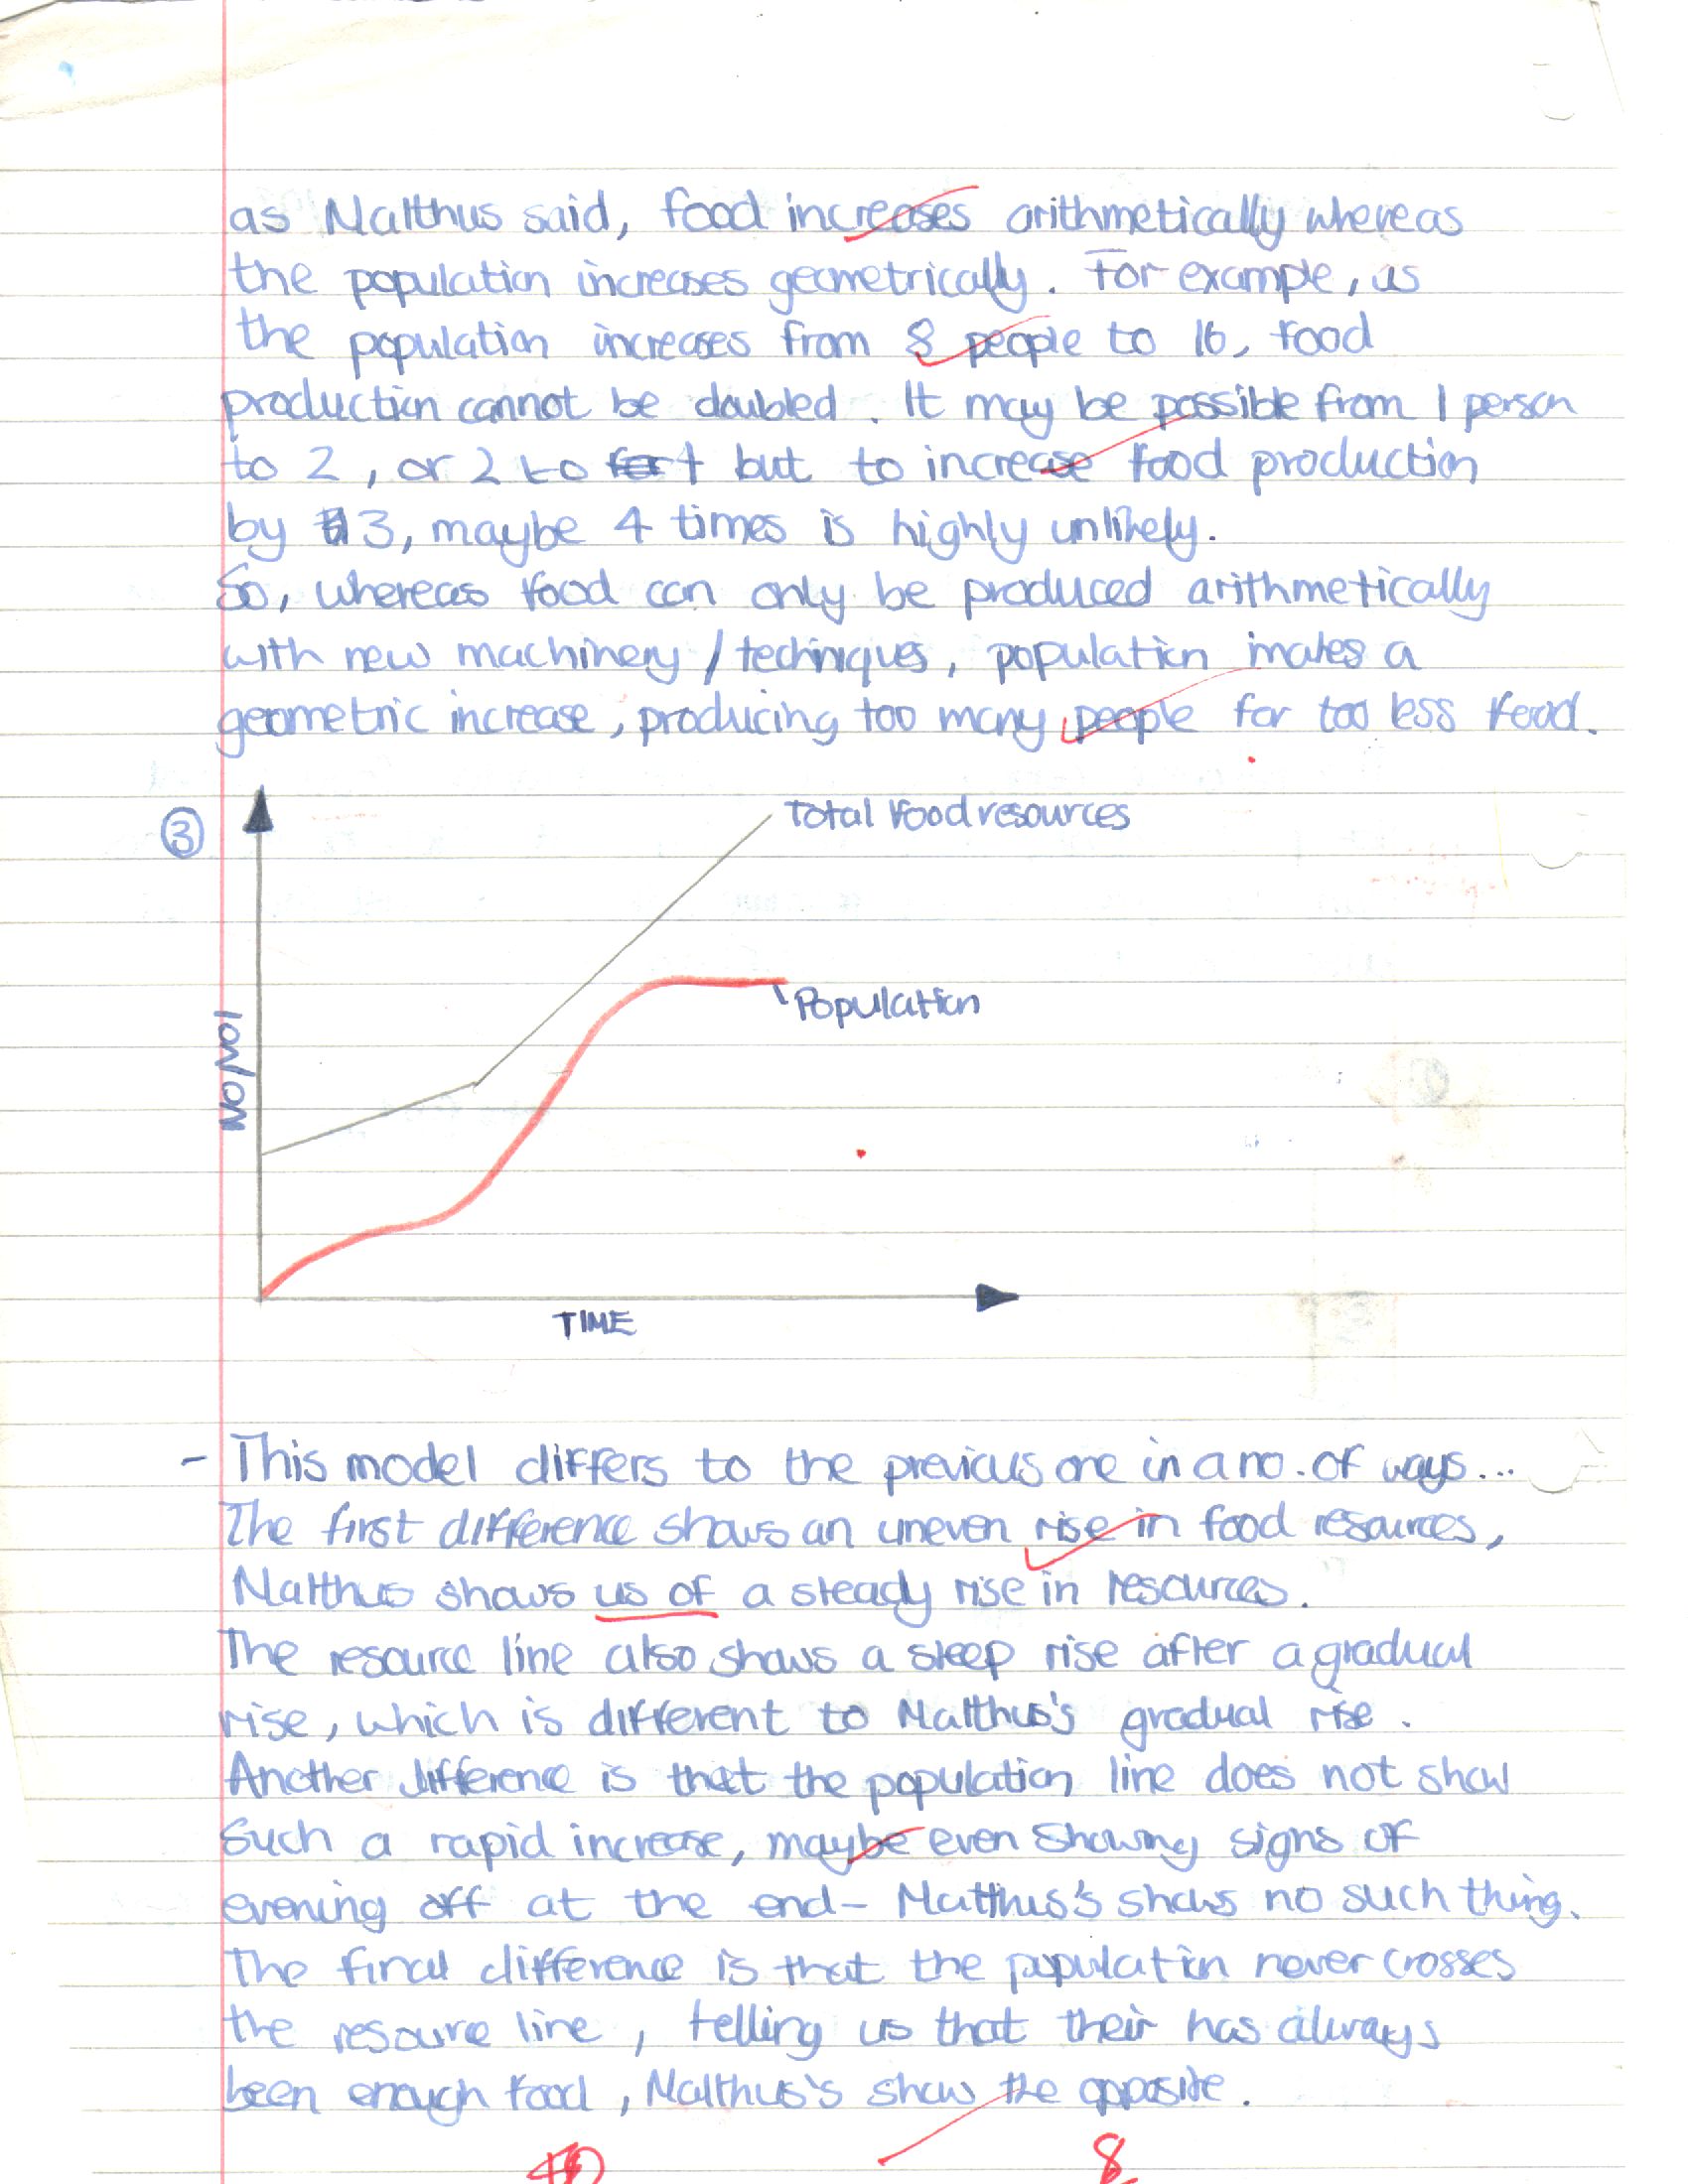 as Malthus said, food increases arithmetically whereas
the population increases geometrically. For example, as
the population increases from 8 people to 16, food
production cannot be doubled. It may be possible from 1 person
to 2, or 2 to 4 but to increase food production
by 3, maybe 4 times is highly unlikely.
So, whereas food can only be produced arithmetically
with new machinery / techniques, population makes a
geometric increase, producing too many people for too less food.
3
Total Food resources
Population
NO/VOL
TIME
- This model differs to the previous one in a no. of ways...
The first difference shows an uneven rise in food resources,
Malthus shows us of a steady rise in resources.
The resource line also shows a steep rise after a gradual
rise, which is different to Malthus's gradual rise.
Another difference is that the population line does not show
such a rapid increase, maybe even showing signs of
evening off at the end - Malthus's shows no such thing.
The final difference is that the population never crosses
the resource line, telling us that their has always
been enough food, Malthus's show the opposite.
8